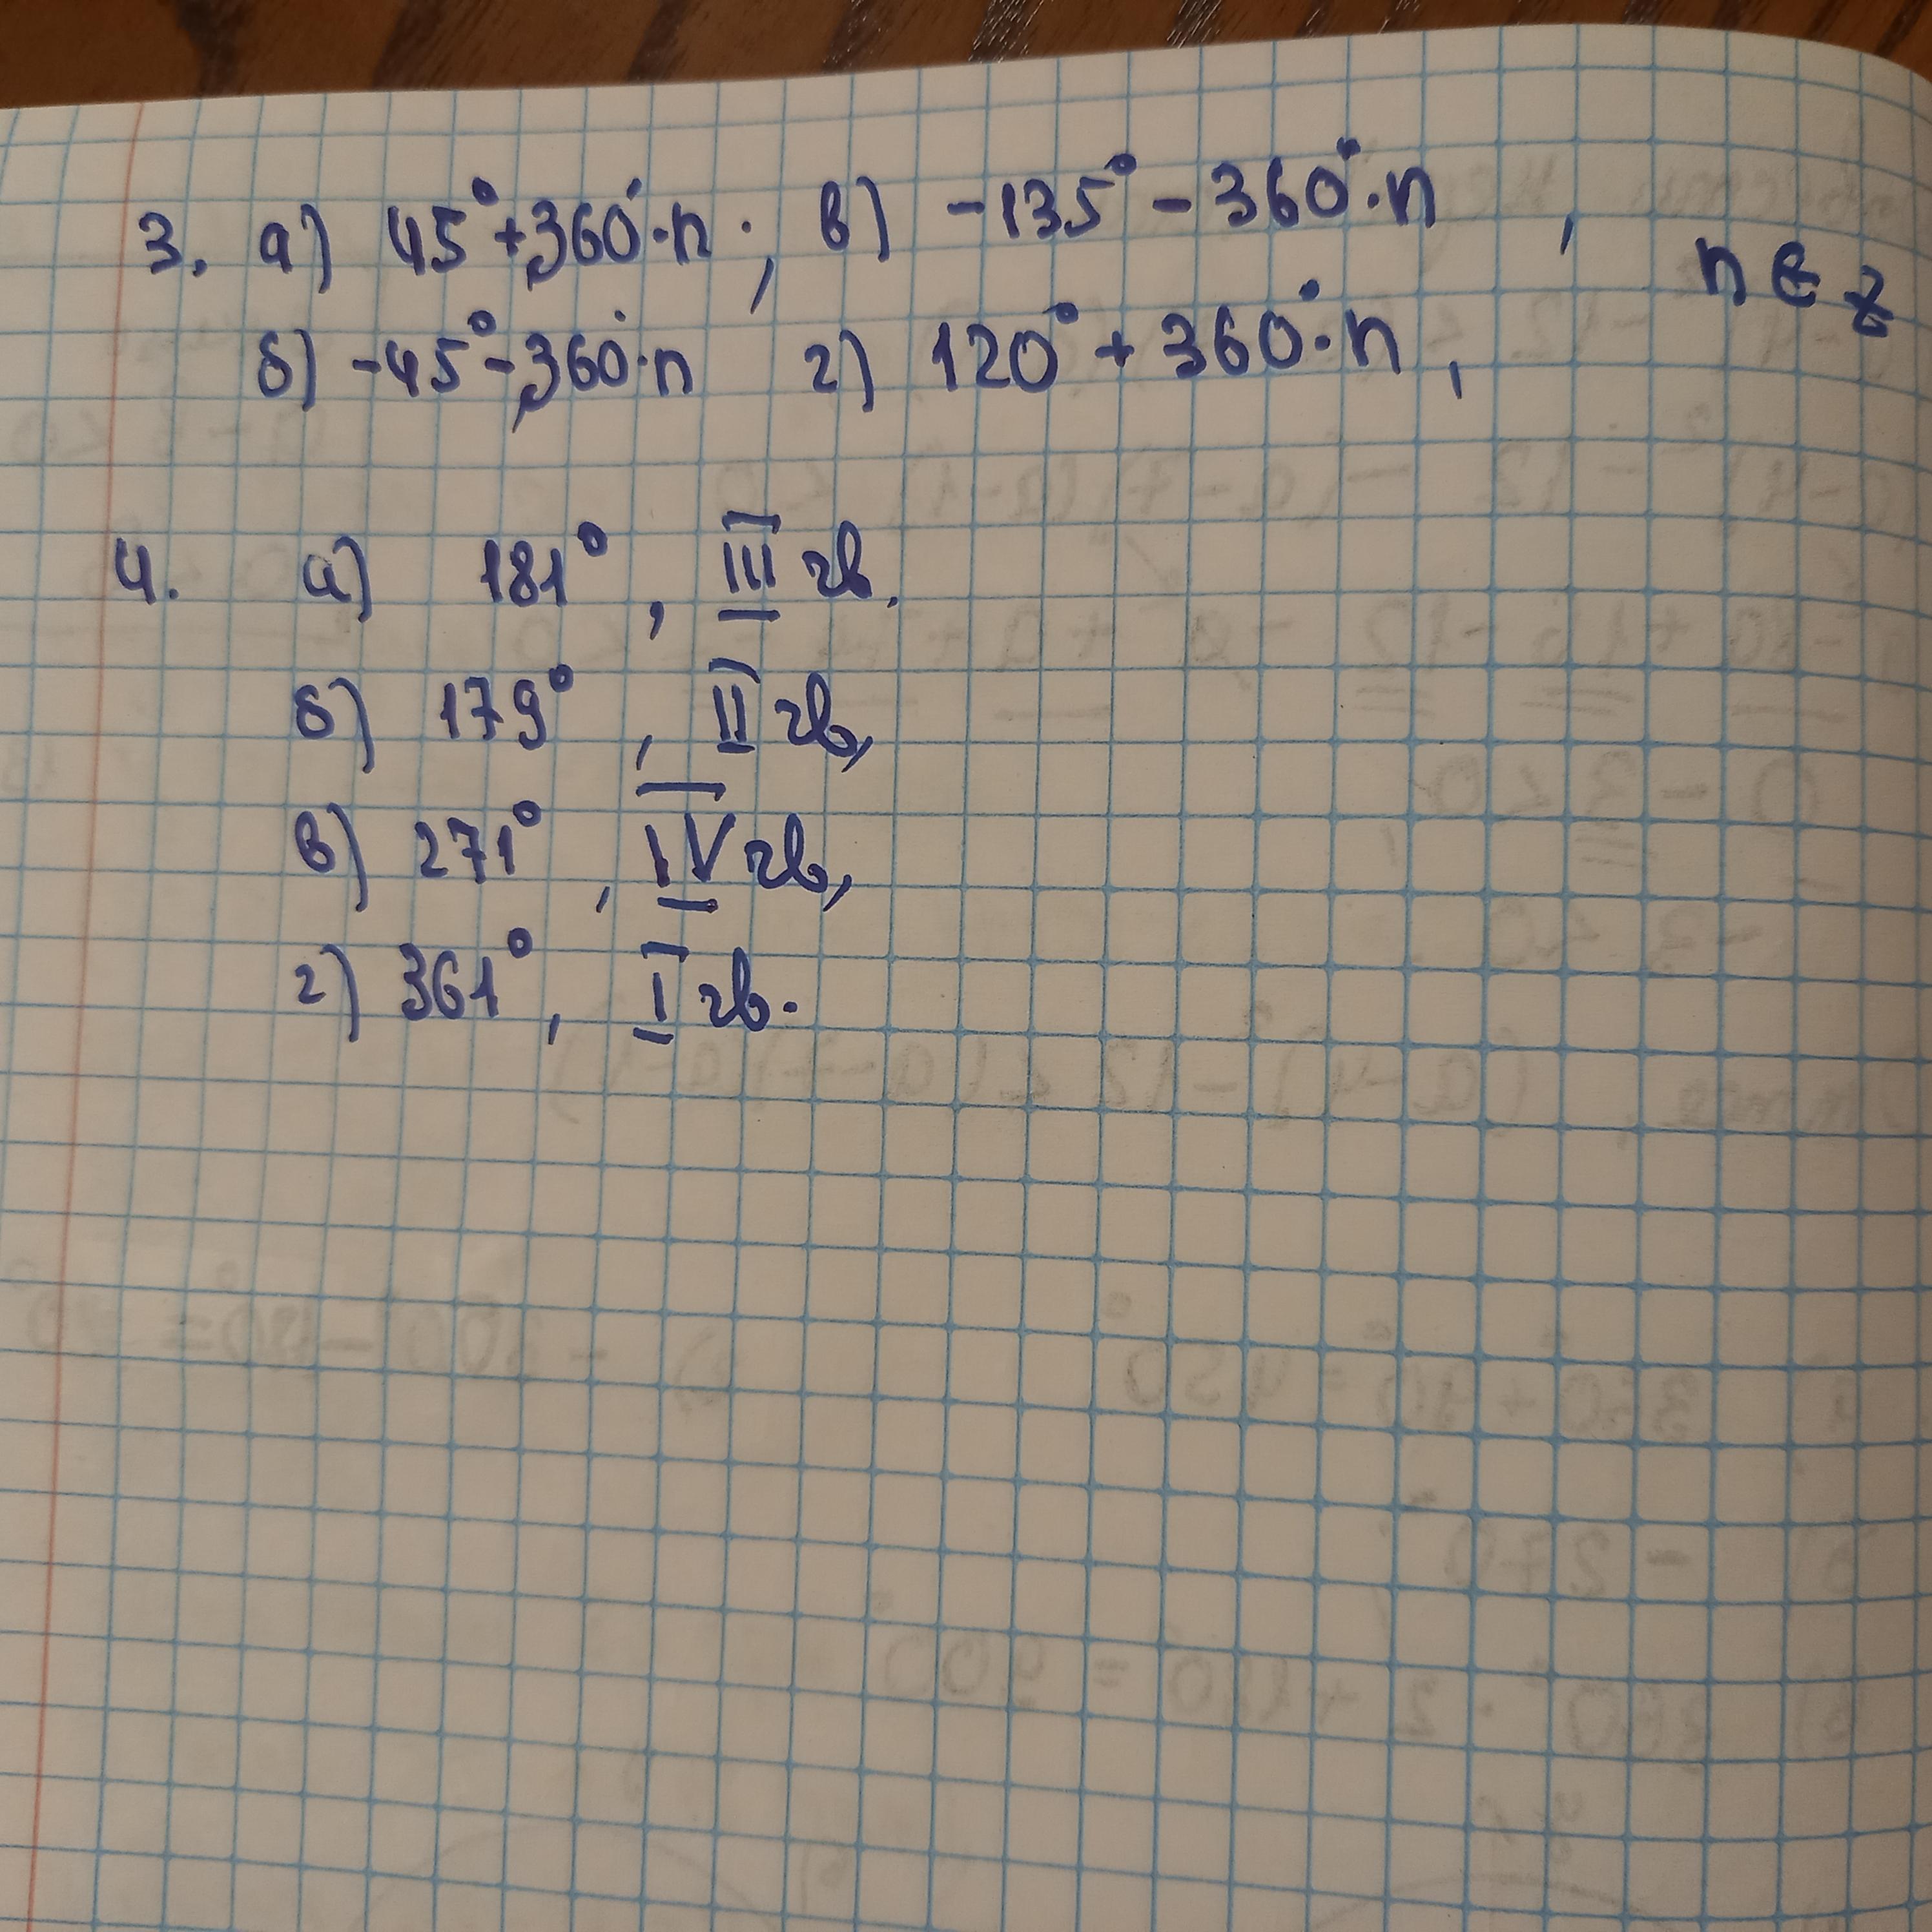 3. а) 45° + 360°·n ; в) -135° - 360°·n ,
n ∈ Z
б) -45° - 360°·n г) 120° + 360°·n ,
4. а) 181° , III чв,
б) 179° , II чв,
в) 271° , IV чв,
г) 361° , I чв.